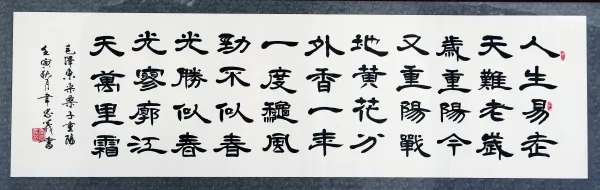 人生易老
天難老歲
歲重陽今
又重陽戰
地黄花分
外香一年
一度穐風
勁不似春
光勝似春
光寥廓江
天萬里霜
毛澤東采桑子重陽
壬寅秋月韋忠義書